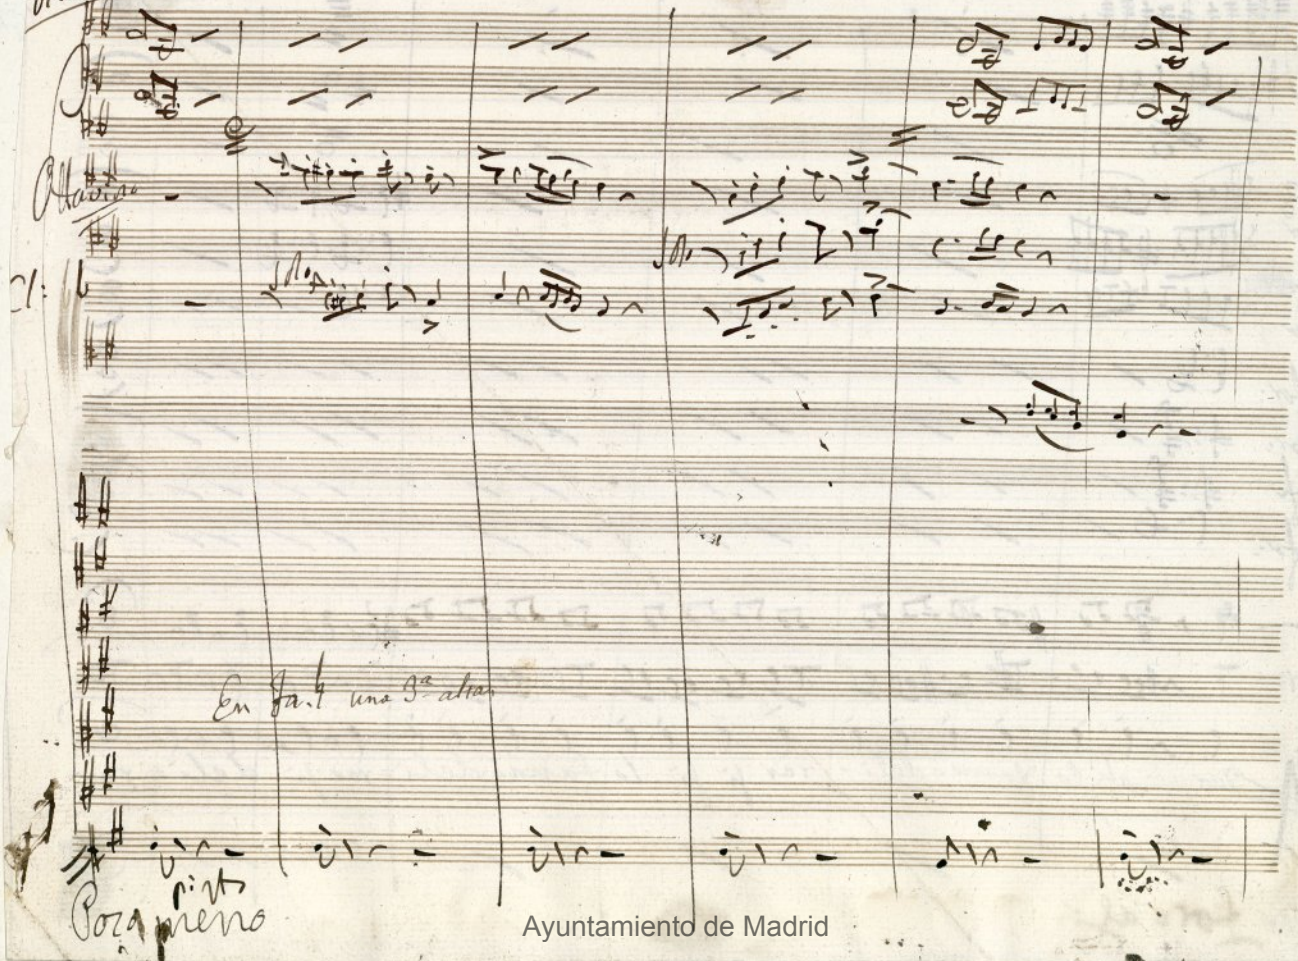 Ottavino
Solo
Solo
Cl:
En Fa.♮ una 3ª alta
pizto
Poco meno
Ayuntamiento de Madrid